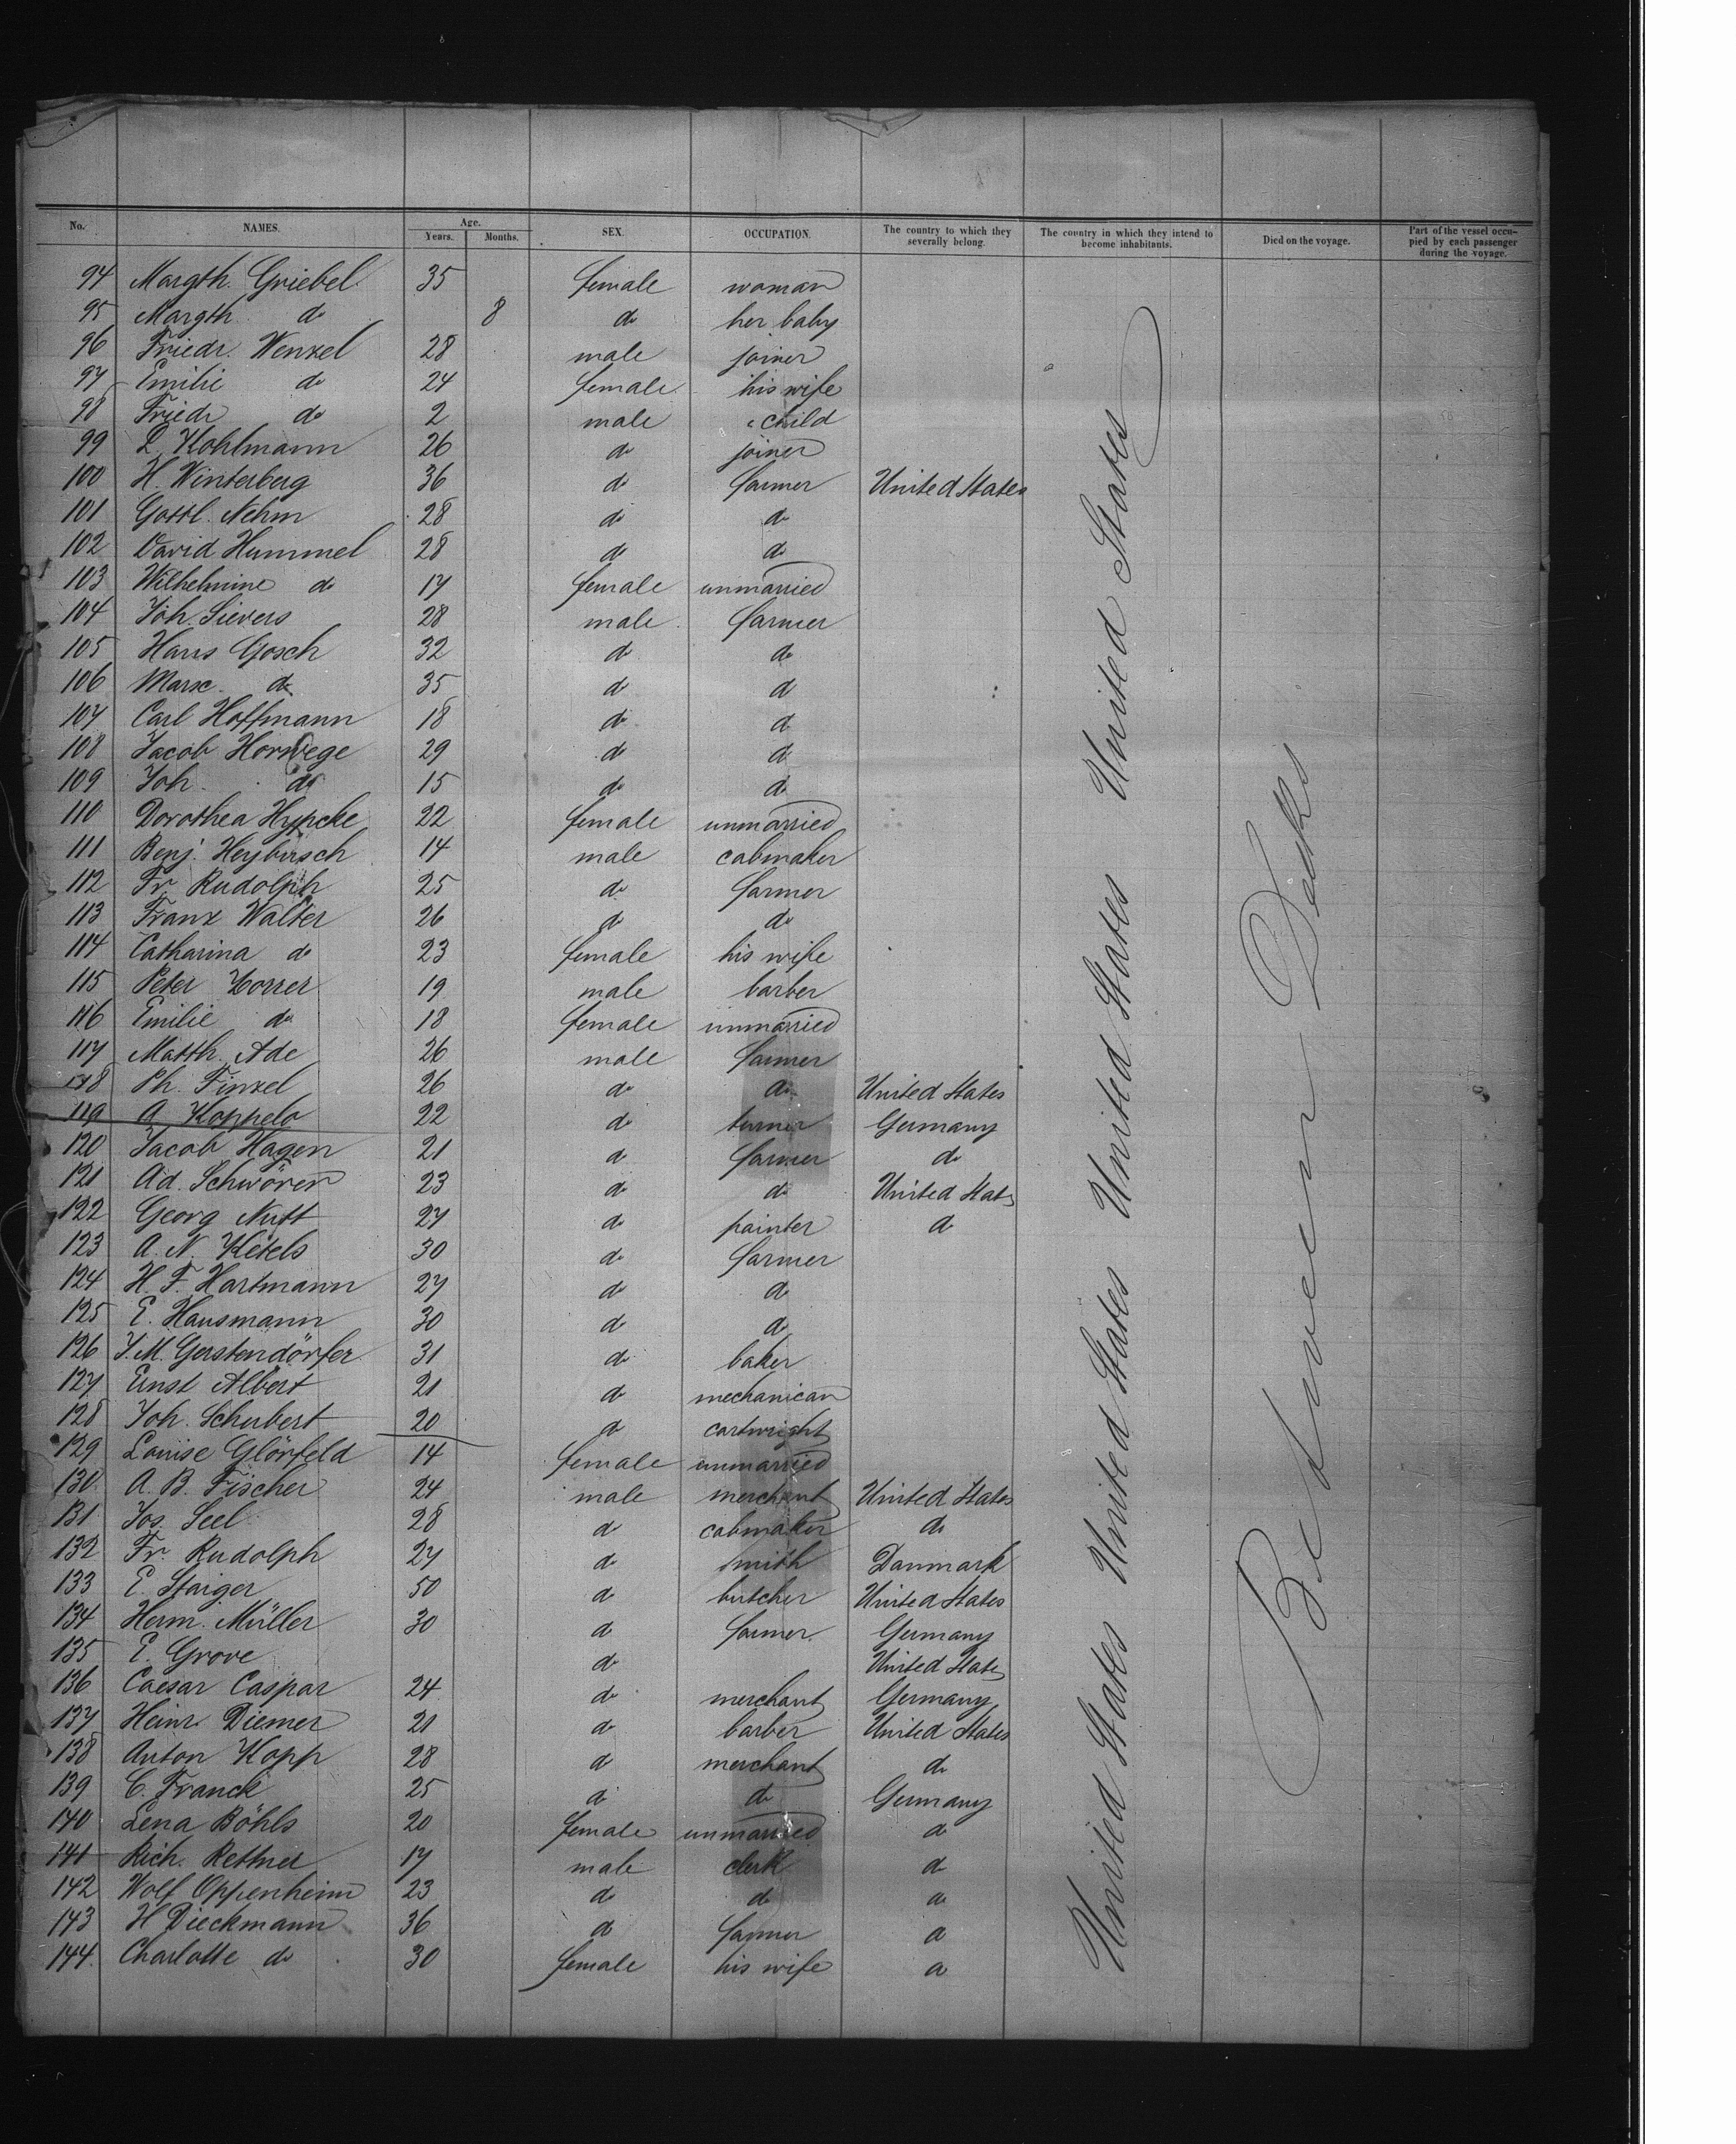 No. NAMES. Age. Years. Months. SEX. OCCUPATION. The country to which they severally belong. The country in which they intend to become inhabitants. Died on the voyage. Part of the vessel occupied by each passenger during the voyage.
94 Margth. Griebel 35 female woman
95 Margth do 8 do her baby
96 Friedr. Wenzel 28 male joiner
97 Emilie do 24 female his wife
98 Friedr do 2 male " child
99 L. Kohlmann 26 do joiner
100 H. Winterberg 36 do farmer United States
101 Gottl. Nehm 28 do do
102 David Hummel 28 do do
103 Wilhelmine do 17 female unmarried
104 Joh. Sievers 28 male farmer
105 Hans Gosch 32 do do
106 Marx do 35 do do
107 Carl Hoffmann 18 do do
108 Jacob Horwege 29 do do
109 Joh. do 15 do do
110 Dorothea Hypcke 22 female unmarried
111 Benj. Heybirsch 14 male cabmaker
112 Fr. Rudolph 25 do farmer
113 Franz Walter 26 do do
114 Catharina do 23 female his wife
115 Peter 19 male barber
116 Emilie do 18 female unmarried
117 Matth. Ade 26 male farmer
118 Ph. Finzel 26 do do United States
119 A Koppelo 22 do turner Germany
120 Jacob Hagen 21 do farmer do
121 Ad. Schwörer 23 do do United States
122 Georg Nutt 27 do painter do
123 A. N. Ketels 30 do farmer
124 H. F. Hartmann 27 do do
125 E. Hausmann 30 do do
126 J. M. Gerstendörfer 31 do baker
127 Ernst Albert 21 do mechanican
128 Joh. Schubert 20 do cartwright
129 Louise Glörfeld 14 female unmarried
130 A. B. Fischer 24 male merchant United States
131 Jos. Seel 28 do cabmaker do
132 Fr. Rudolph 27 do smith Danmark
133 E. Staiger 50 do butcher United States
134 Herm. Müller 30 do farmer Germany
135 E. Grove do United States
136 Caesar Caspar 24 do merchant Germany
137 Heinr. Diemer 21 do barber United States
138 Anton Kopp 28 do merchant do
139 C. Franck 25 do do Germany
140 Lena Böhls 20 female unmarried do
141 Rich. Rettner 17 male clerk do
142 Wolf Oppenheim 23 do do do
143 H Dieckmann 36 do farmer do
144 Charlotte do 30 female his wife do
United States United States United States United States United States
Between Decks